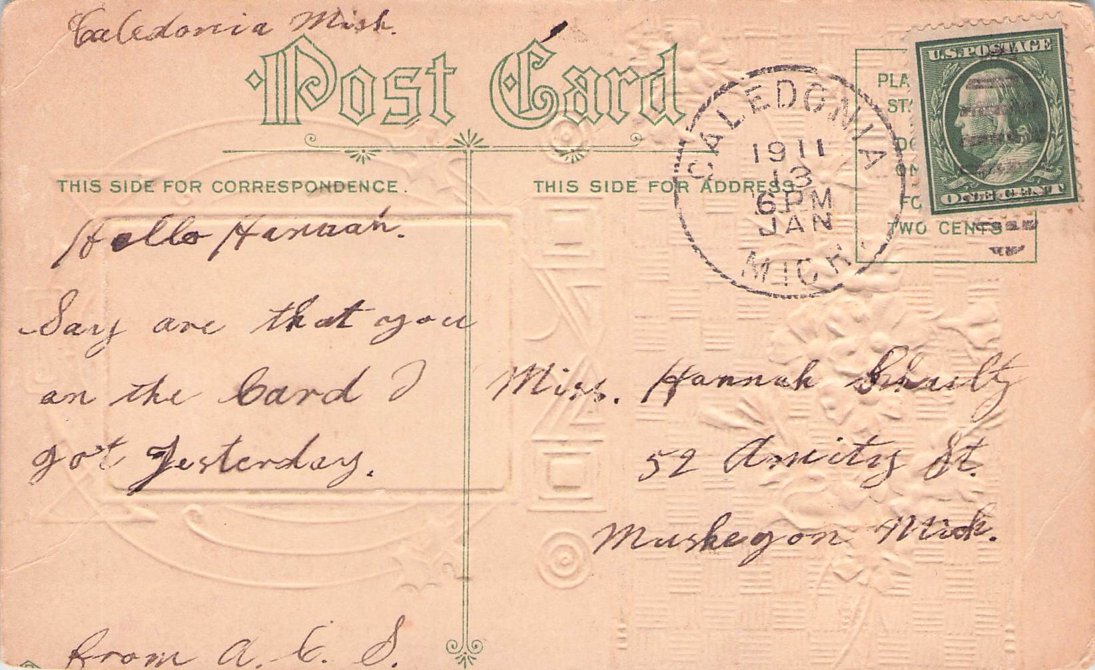 Caledonia Mich.
Post Card
THIS SIDE FOR CORRESPONDENCE.
THIS SIDE FOR ADDRESS
CALEDONIA
1911
13
6 PM
JAN
MICH.
U.S. POSTAGE
ONE CENT
PLA
STA
DO
ON
FO
TWO CENTS
Hello Hannah.
Say are that you
on the Card I
got yesterday.
from A. C. S.
Miss. Hannah Shultz
52 Amity St.
Muskegon Mich.